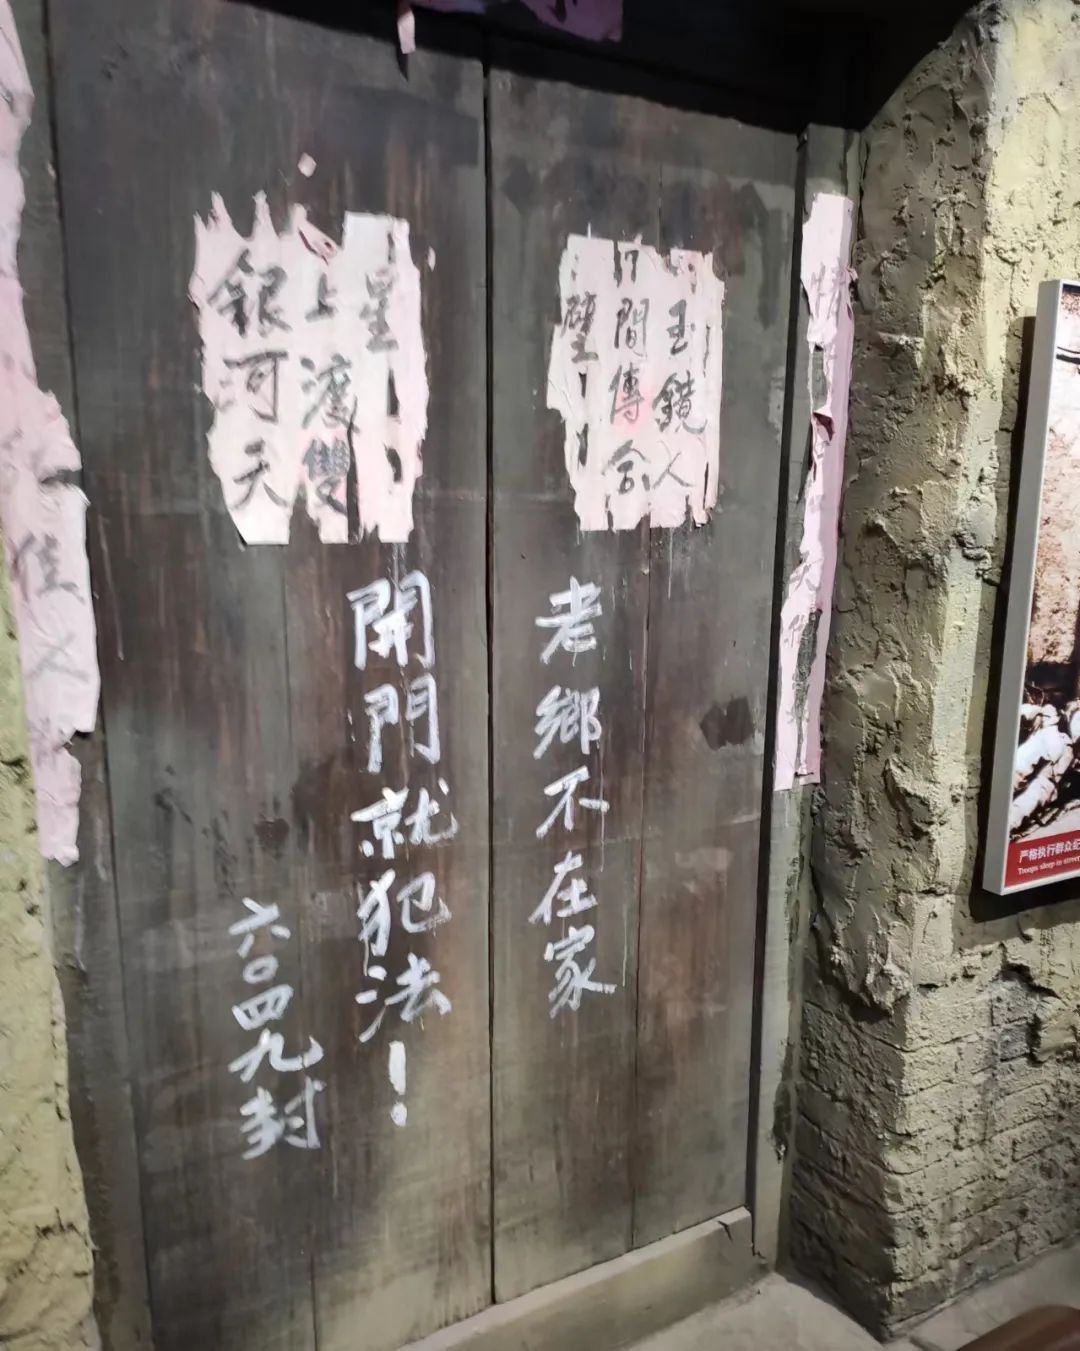 老鄉不在家
開門就犯法！
六〇四九封
玉錯人
間傳合
璧
星
上渡雙
銀河天
佳人
严格执行群众纪
Troops sleep in street